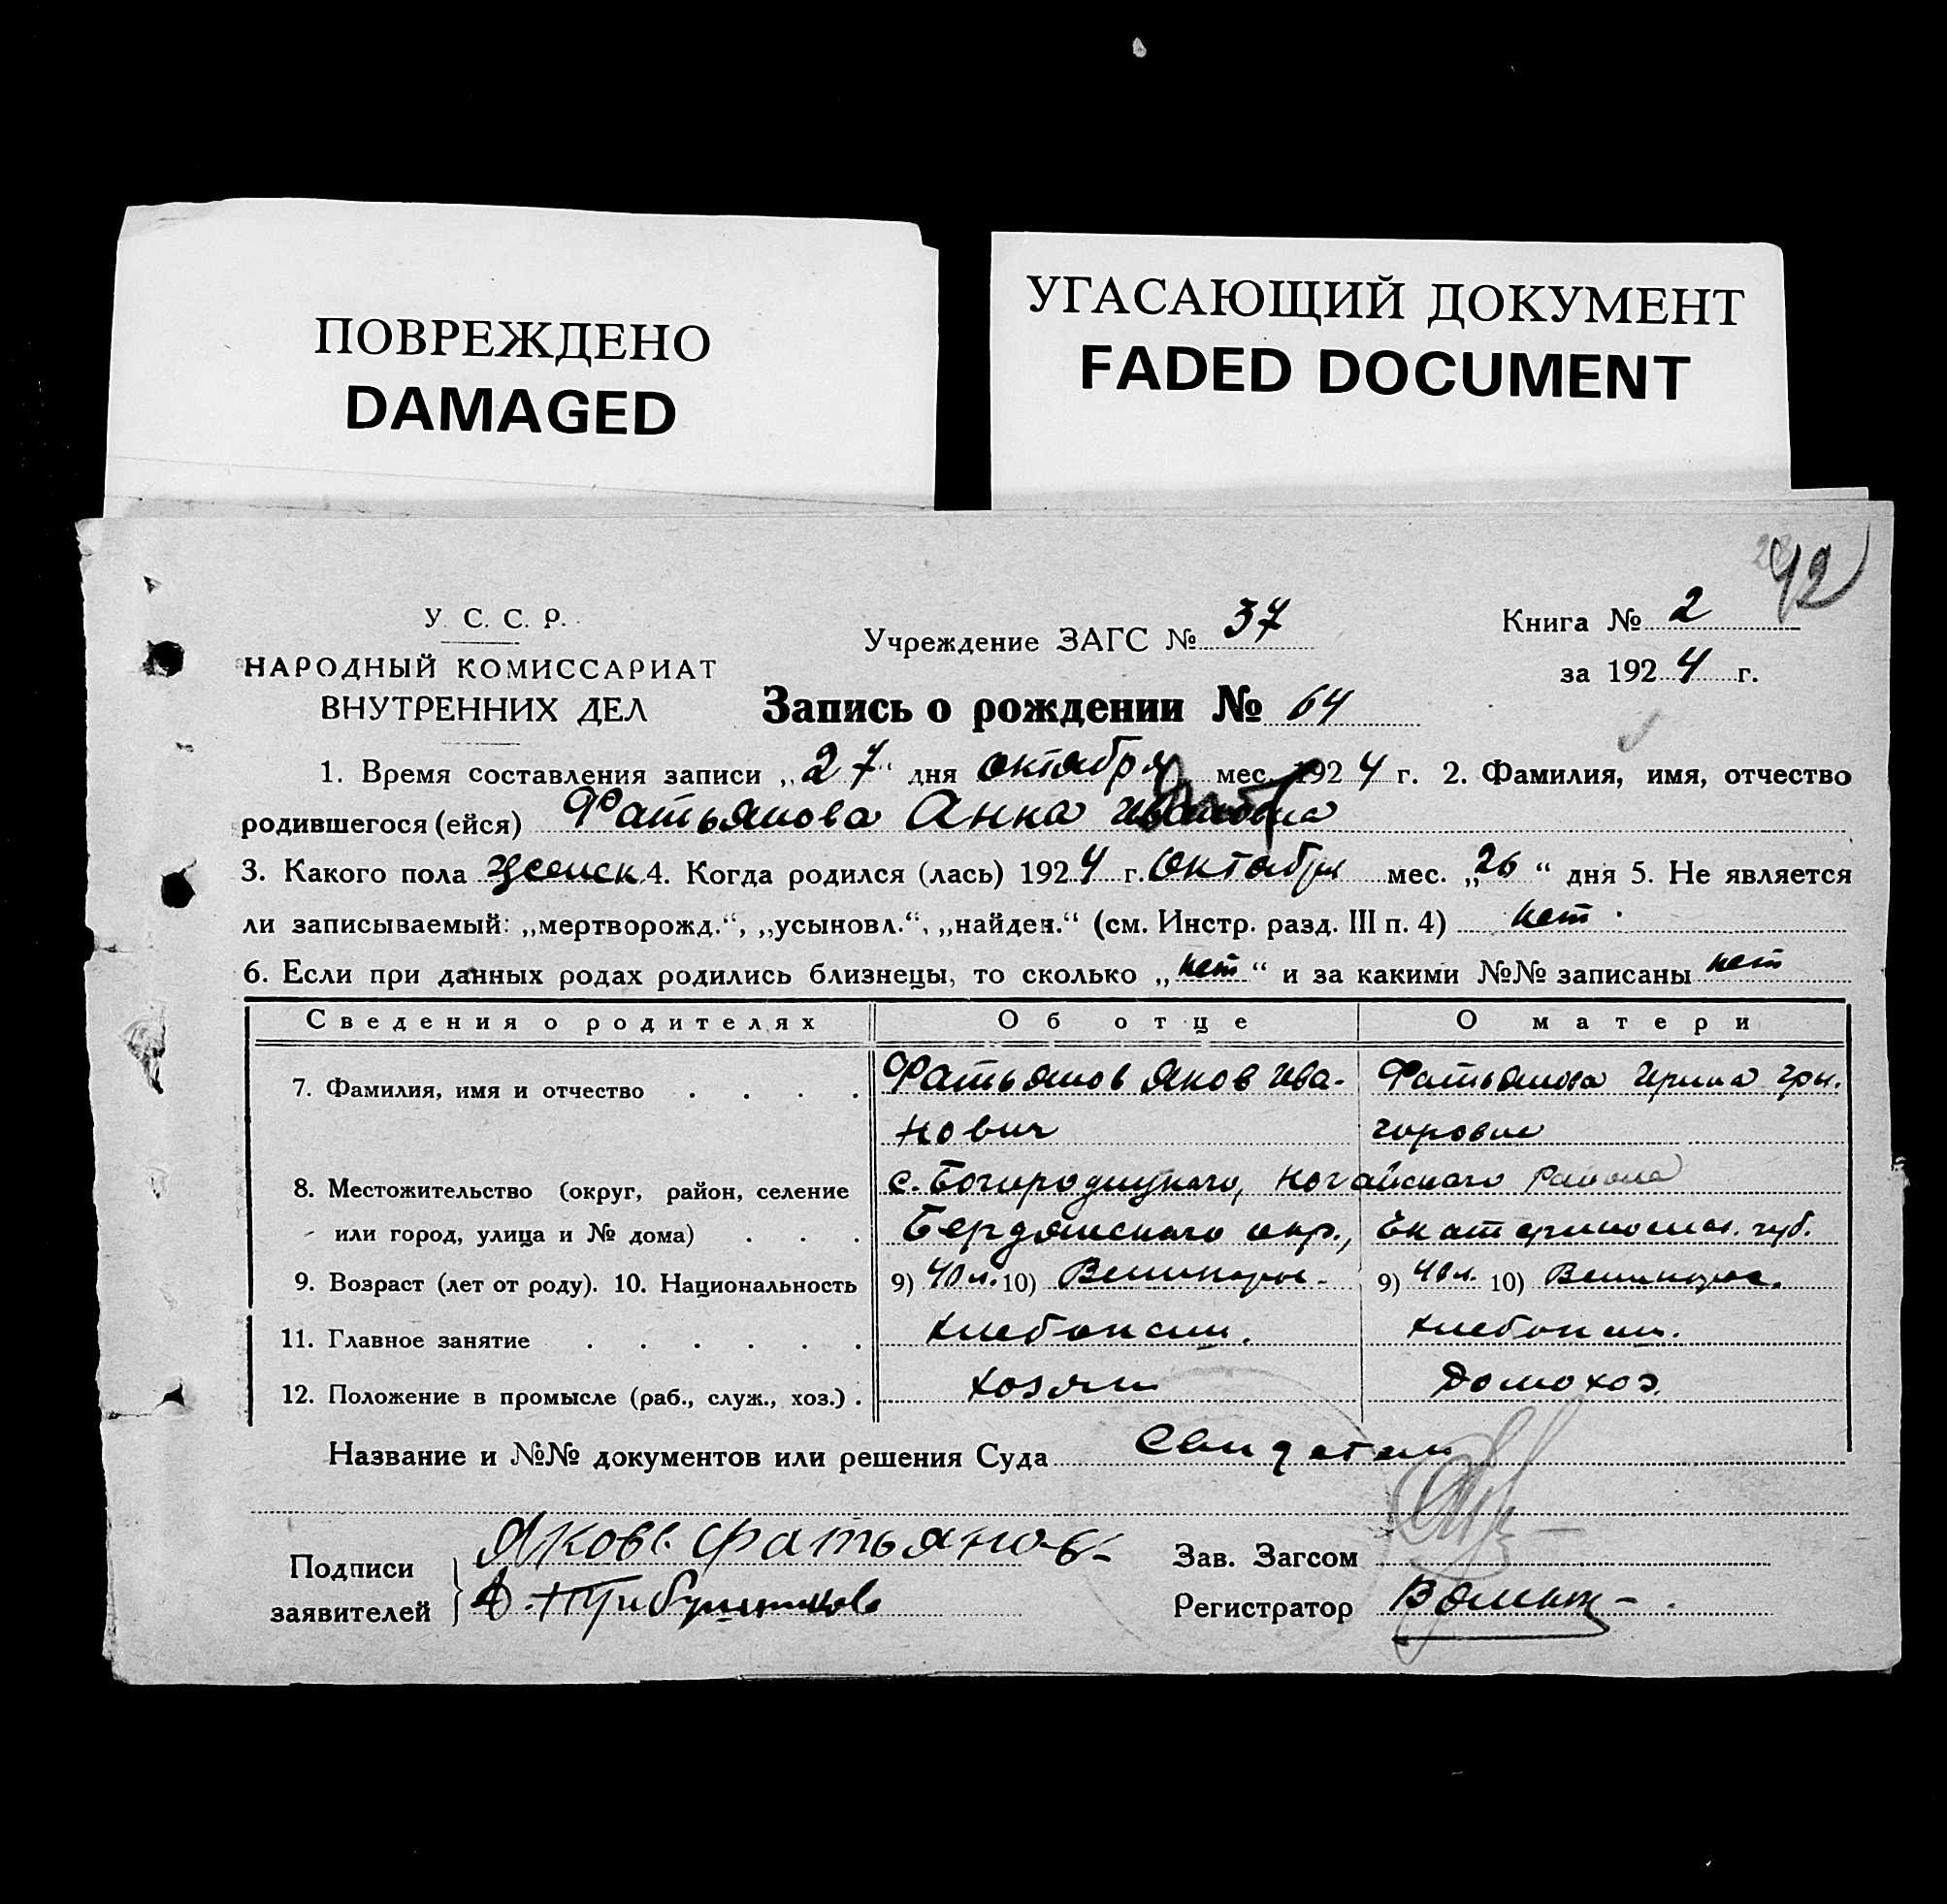 ПОВРЕЖДЕНО
DAMAGED
УГАСАЮЩИЙ ДОКУМЕНТ
FADED DOCUMENT
92
У. С. С. Р.
НАРОДНЫЙ КОМИССАРИАТ
ВНУТРЕННИХ ДЕЛ
Учреждение ЗАГС № 37
Книга № 2
за 1924 г.
Запись о рождении № 64
1. Время составления записи „27“ дня октября мес. 1924 г. 2. Фамилия, имя, отчество
родившегося (ейся) Фатьянова Анна
3. Какого пола женск. 4. Когда родился (лась) 1924 г. Октября мес. „26“ дня 5. Не является
ли записываемый: „мертворожд.“, „усыновл.“, „найден.“ (см. Инстр. разд. III п. 4) нет
6. Если при данных родах родились близнецы, то сколько „нет“ и за какими №№ записаны нет
Сведения о родителях Об отце О матери
7. Фамилия, имя и отчество . . . . Фатьянов Яков Ива- Фатьянова Ирина Гри-
нович горовна
8. Местожительство (округ, район, селение с. Богородицкого, Ногайского Района
или город, улица и № дома) . . . Бердянского окр., Екатеринослав. губ.
9. Возраст (лет от роду). 10. Национальность 9) 40 л. 10) Великорос. 9) 40 л. 10) Великорос.
11. Главное занятие . . . . . . Хлебопаш. Хлебопаш.
12. Положение в промысле (раб., служ., хоз.) . Хозяин Домохоз.
Название и №№ документов или решения Суда Свидетели
Подписи
заявителей
Яковъ Фатьяновъ
Зав. Загсом
Регистратор